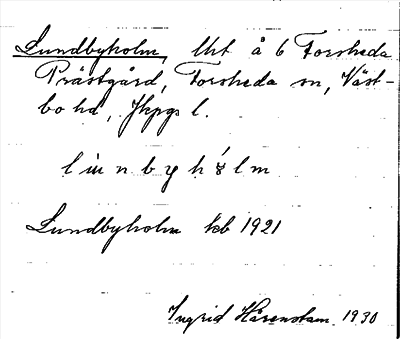 Lundbyholm, lht å 6 Forsheda
Prästgård, Forsheda sn, Väst-
bo hd, Jkpgs l.
Lundbyholm kb 1921
Ingrid Hårenstam 1930